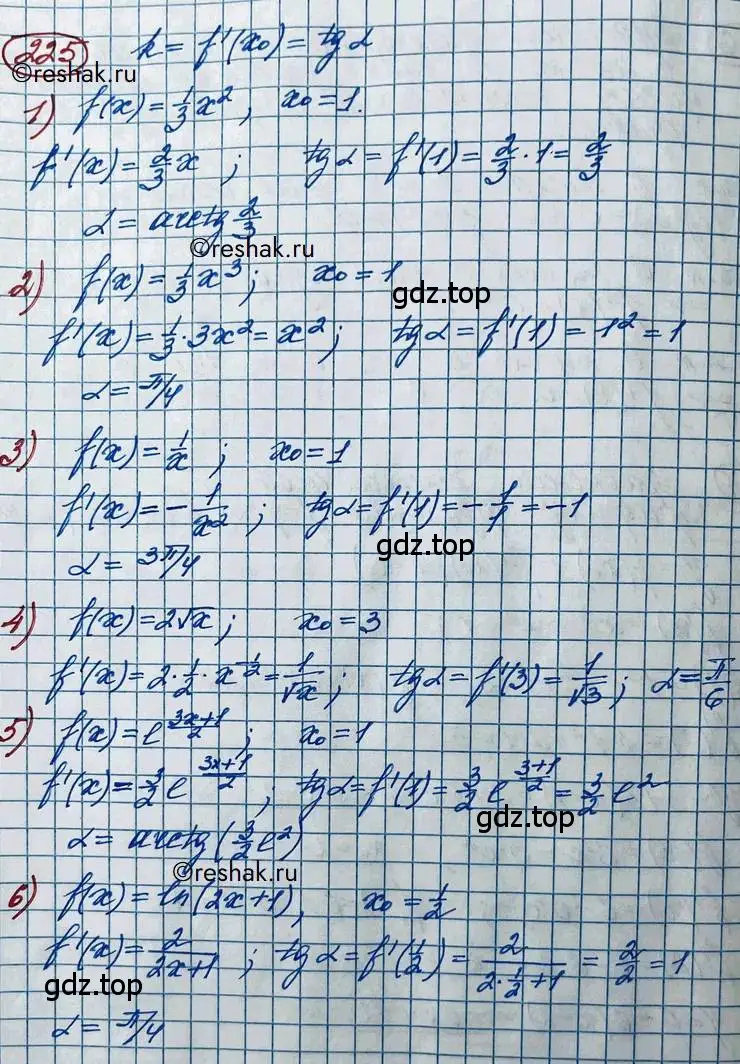 225 k = f'(x₀) = tg α
©reshak.ru
1) f(x) = 1/3 x², x₀ = 1.
f'(x) = 2/3 x ; tg α = f'(1) = 2/3 · 1 = 2/3
α = arctg 2/3
©reshak.ru
2) f(x) = 1/3 x³; x₀ = 1
gdz.top
f'(x) = 1/3 · 3x² = x²; tg α = f'(1) = 1² = 1
α = π/4
3) f(x) = 1/x ; x₀ = 1
f'(x) = - 1/x² ; tg α = f'(1) = - 1/1 = -1
gdz.top
α = 3π/4
4) f(x) = 2√x ; x₀ = 3
f'(x) = 2 · 1/2 · x^(-1/2) = 1/√x ; tg α = f'(3) = 1/√3 ; α = π/6
5) f(x) = e^((3x+1)/2) ; x₀ = 1
f'(x) = 3/2 e^((3x+1)/2) ; tg α = f'(1) = 3/2 e^((3+1)/2) = 3/2 e²
gdz.top
α = arctg(3/2 e²)
©reshak.ru
6) f(x) = ln(2x+1), x₀ = 1/2
f'(x) = 2/(2x+1) ; tg α = f'(1/2) = 2/(2·1/2+1) = 2/2 = 1
gdz.top
α = π/4